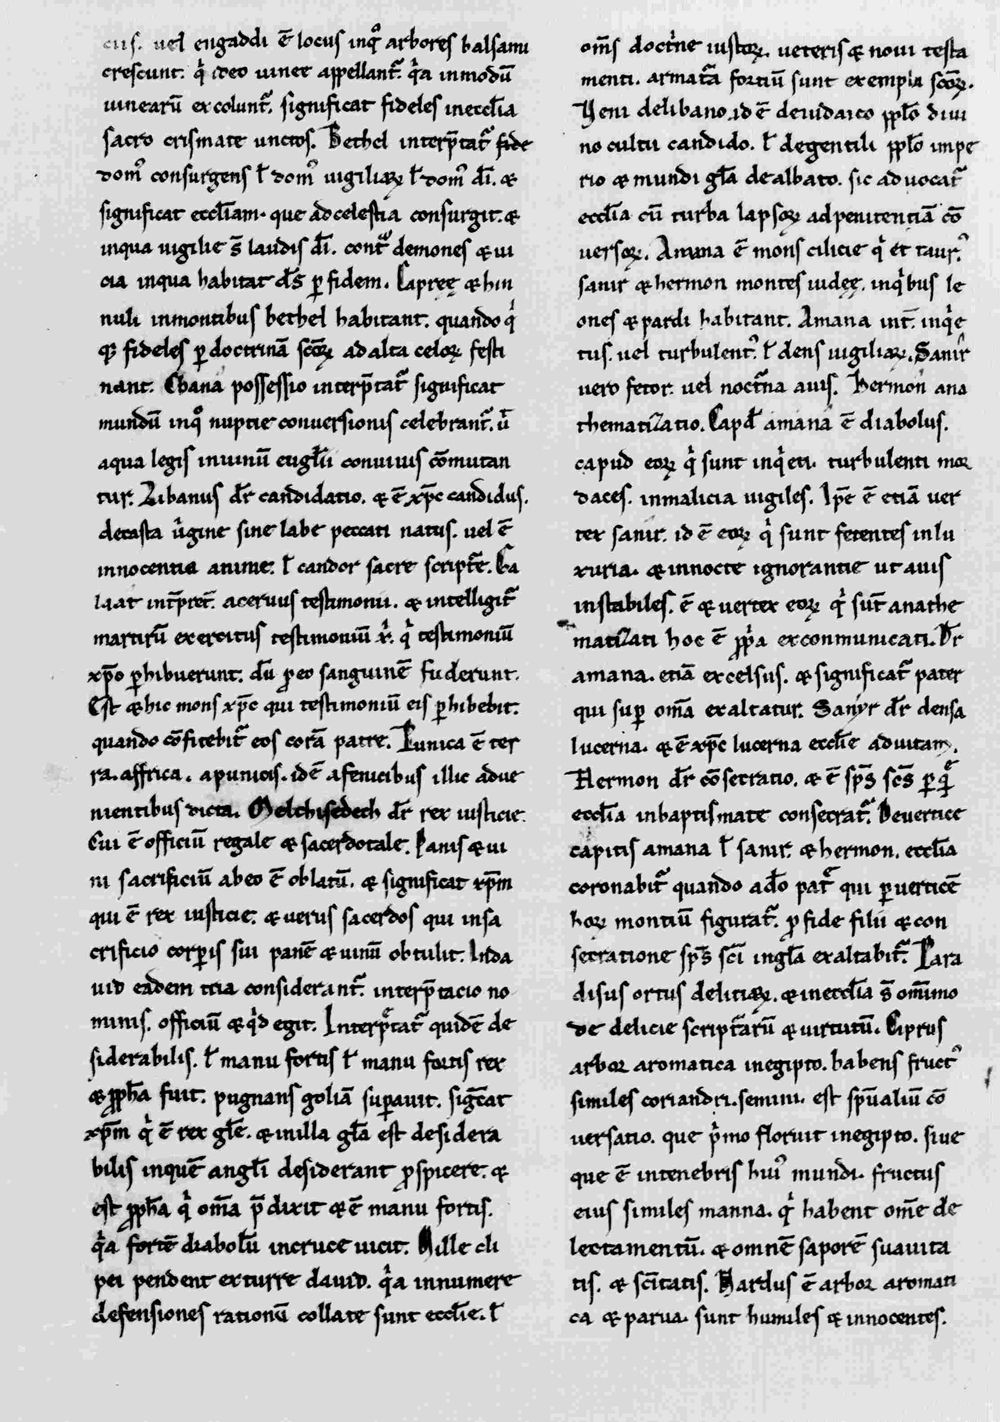 cus. uel engaddi ē locus inqͦ arbores balsami
crescunt. q̇ ideo uinee appellant᷑. q̇a inmodū
uinearū excolunt᷑. significat fideles ineccl̄ia
sacro crismate unctos. Bethel interp̄tat᷑ fide
domꝰ consurgens ł domꝰ uigiliaꝝ ł domꝰ dī. ⁊
significat eccl̄iam. que adcelestia consurgit. ⁊
inqua uigilie s̄ laudis dī. contᷓ demones ⁊ ui
cia inqua habitat d̄s ꝑ fidem. Capreę ⁊ hin
nuli inmontibus bethel habitant. quando q̇
qꝫ fideles ꝑ doctrinā sc̄oꝝ ad alta celoꝝ festi
nant. Chana possessio interp̄tat᷑ significat
mundū inqͦ nuptie conuersionis celebrant᷑. ū
aqua legis inuinū eugl̄ii conuiuis cōmutan
tur. Libanus dr̄ candidatio. ⁊ ē xp̄c candidus.
decasta ūgine sine labe peccati natus. uel ē
innocentia anime. ł candor sacre script᷑e. Ga
laat int̄pret᷑. aceruus testimonii. ⁊ intelligit᷑
martirū exercitus testimoniū x̄. q̇ testimoniū
xp̄o ꝑhibuerunt. dū ꝓ eo sanguinē fuderunt.
Est ⁊ hic mons xp̄c qui testimoniū eis ꝑhibebit.
quando cōfitebit᷑ eos corā patre. Punica ē ter
ra. affrica. apunicis. idē afenicibus illic adue
nientibus dicta. Melchisedech dr̄ rex iusticie.
Cui ē officiū regale ⁊ sacerdotale. Panis ⁊ ui
ni sacrificiū abeo ē oblatū. ⁊ significat xp̄m
qui ē rex iusticie. ⁊ uerus sacerdos qui insa
crificio corꝑis sui panē ⁊ uinū obtulit. Inda
uid eadem tria considerant᷑. interp̄tacio no
minis. officiū ⁊ q̇d egit. Interp̄tat᷑ quidē de
siderabilis. ł manu fortis ł manu fortis rex
⁊ ꝓph̄a fuit. pugnans goliā suꝑauit. sig̅cat
xp̄m q̇ ē rex gl̄e. ⁊ inilla gl̄a est desidera
bilis inquē angl̄i desiderant ꝓspicere. ⁊
est ꝓph̄a q̇ om̄a p̄dixit ⁊ ē manu fortis.
q̇a fortē diabolū incruce uicit. Mille cli
pei pendent exturre dauid. q̇a innumere
defensiones rationū collate sunt eccl̄ie. ł
om̄s doctͥne iustoꝝ. ueteris ⁊ noui testa
menti. armata᷑ fortiū sunt exempla sc̄oꝝ.
Veni delibano. id ē deiudaico ppl̄o diui
no cultu candido. ł degentili ppl̄o impe
rio ⁊ mundi gl̄a dealbato. sic aduocat᷑
eccl̄ia cū turba lapsoꝝ adpenitentiā cō
uersoꝝ. Amana ē mons cilicie q̇ et taurꝰ.
sanir ⁊ hermon montes iudeę. inq̇bus le
ones ⁊ pardi habitant. Amana int̄. inq̇e
tus. uel turbulentꝰ. ł dens uigiliaꝝ. Sanir
uero fetor. uel noct᷑na auis. Hermon ana
thematizatio. Capud amana ē diabolus.
capud eoꝝ q̇ sunt inq̇eti. turbulenti mor
daces. inmalicia uigiles. Ip̄e ē etiā uer
tex sanir. id ē eoꝝ q̇ sunt fetentes inlu
xuria. ⁊ innocte ignorantie ut auis
instabiles. ē ⁊ uertex eoꝝ q̇ sut̄ anathe
matizati hoc ē ꝓp̄a exconmunicati. Dr̄
amana. etiā excelsus. ⁊ significat᷑ pater
qui suꝑ om̄a exaltatur. Sanyr dr̄ densa
lucerna. ⁊ ē xp̄c lucerna eccl̄ie aduitam.
Hermon dr̄ cōsecratio. ⁊ ē sp̄s sc̄s ꝑ q̄
eccl̄ia inbaptismate consecrat᷑. Deuertice
capitis amana ł sanir. ⁊ hermon. eccl̄ia
coronabit᷑ quando adō pat᷑ qui ꝑ uerticē
hoꝝ montiū figurat᷑. ꝓ fide filii ⁊ con
secratione sp̄s sc̄i ingl̄a exaltabit᷑. Para
disus ortus deliciaꝝ. ⁊ ineccl̄ia s̄ omīmo
de delicie script᷑arū ⁊ uirtutū. Ciprus
arbor aromatica inegipto. habens fructꝰ
similes coriandri. semini. est sp̄ualiū cō
uersatio. que p̄mo floruit inegipto. siue
que ē intenebris huiꝰ mundi. fructus
eius similes manna. q̇ habent om̄e de
lectamentū. ⁊ omnē saporē suauita
tis. ⁊ sc̄itatis. Nardus ē arbor aromati
ca ⁊ parua. sunt humiles ⁊ innocentes.